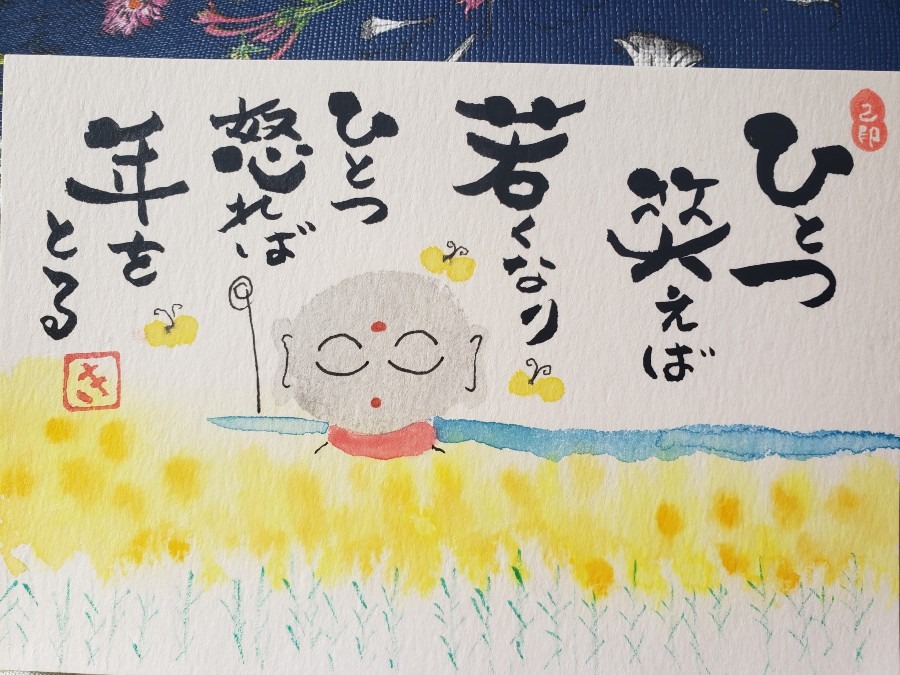 ひとつ
笑えば
若くなり
ひとつ
怒れば
年を
とる
き